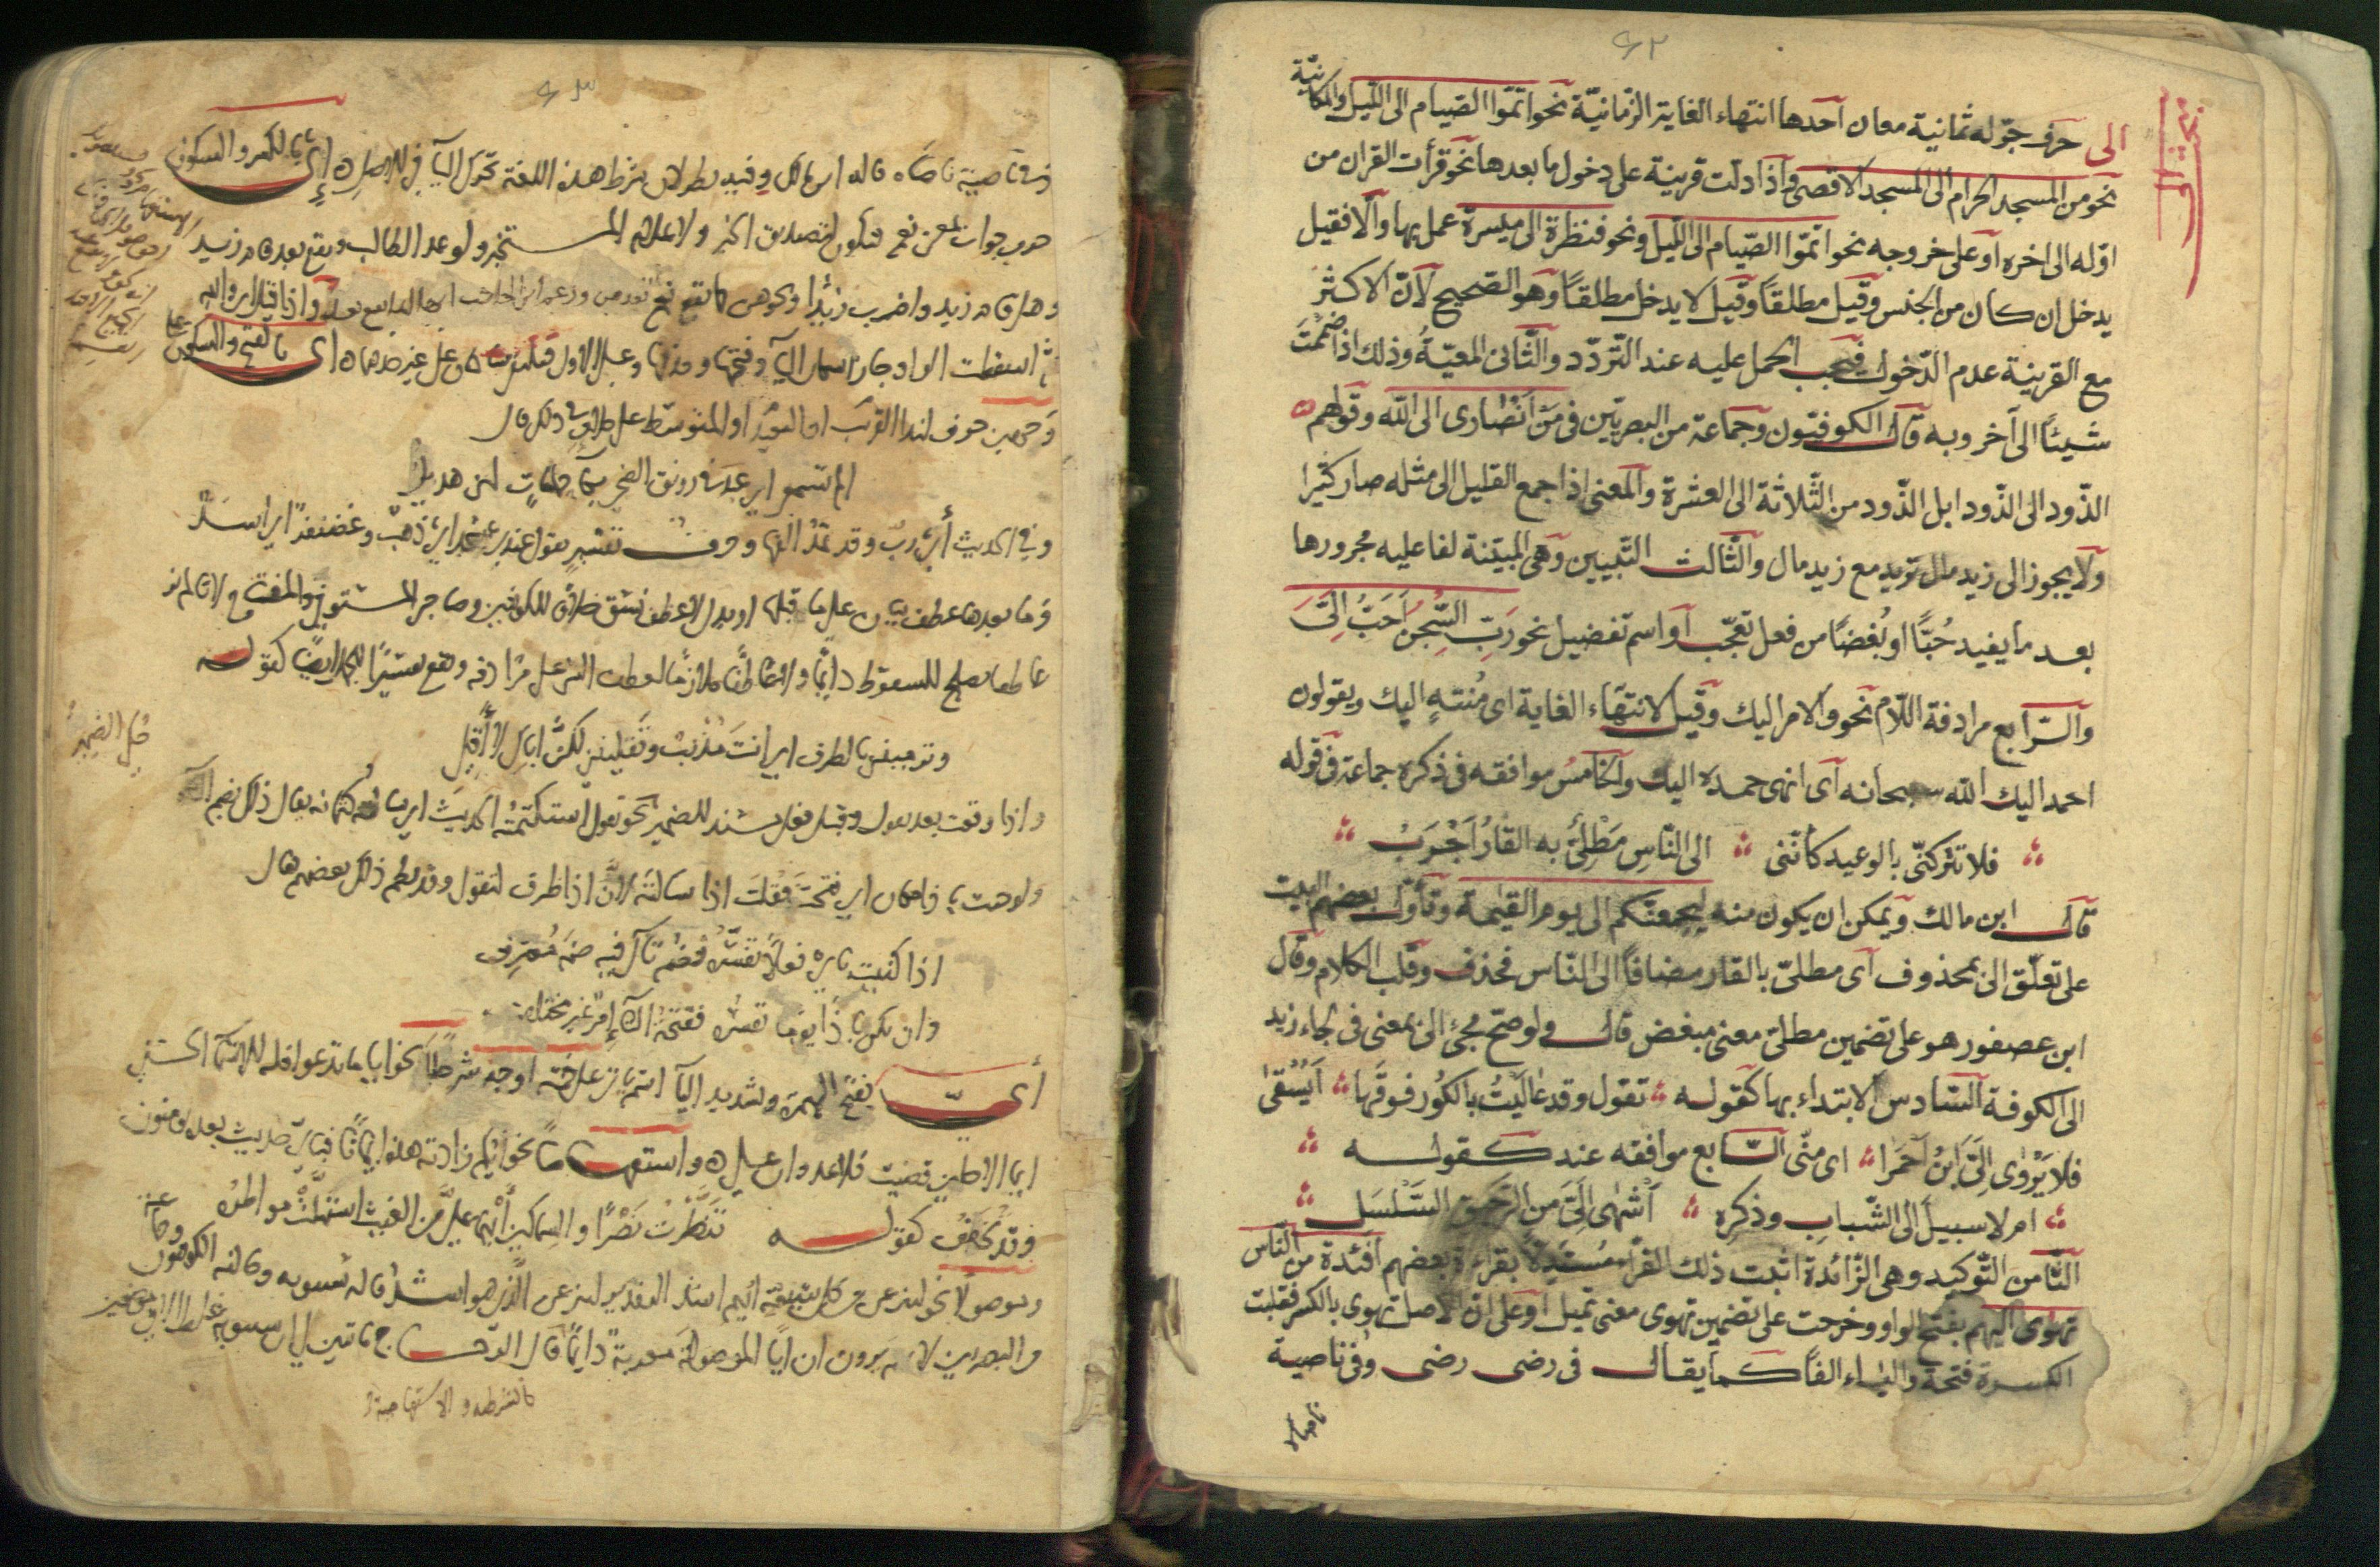 ٤٢
الى حرف جرّ له ثمانية معان آحدها انتهاء الغاية الزمانيّة نحو اتمّوا الصّيام الى اللّيل والمكانيّة
نحو من المسجد الحرام الى المسجد الاقصى وآذا دلّت قرينة على دخول ما بعدها نحو قرأت القران من
اوّله الى اخره آو على خروجه نحو اتمّوا الصّيام الى اللّيل ونحو فنظرة الى ميسرة عمل بها وآلّا فقيل
يدخل ان كان من الجنس وقيل مطلقاً وقيل لا يدخل مطلقاً وهو الصّحيح لآنّ الاكثر
مع القرينة عدم الدّخول فيجب الحمل عليه عند التّردّد والثّانى المعيّة وذلك اذا ضممت
شيئاً الى آخر وبه قال الكوفيّون وجماعة من البصريّين فى من انصارى الى الله وقولهم
الذّود الى الذّود ابل الذّود من الثّلاثة الى العشرة والمعنى اذا جمع القليل الى مثله صار كثيرا
ولا يجوز الى زيد مال تريد مع زيد مال والثّالث التّبيين وهى المبيّنة لفاعليه مجرورها
بعد ما يفيد حُبًّا او بُغضًا من فعل تعجّب آو اسم تفضيل نحو ربِّ السّجنُ أحَبُّ الَىَّ
والرّابع مرادفة اللّام نحو والامر اليك وقيل لانتهاء الغاية اى مُنتهٍ اليك ويقولون
احمد اليك الله سبحانه آى انهى حمده اليك والخامس موافقه فى ذكره جماعة فى قوله
فلا تتركنّى بالوعيد كأنّنى الى النّاسِ مَطْلِىٌّ به القارُ أَجْرَبُ
قال ابن مالك ويمكن ان يكون منه ليجمعنّكم الى يوم القيمة وتأوّل بعضهم البيت
على تعلّق الى بمحذوف آى مطلىّ بالقار مضافاً الى النّاس فحذف وقلب الكلام وقال
ابن عصفور هو على تضمين مطلىّ معنى مبغض قال ولو صحّ مجئ الى بمعنى فى لجاء زيد
الى الكوفة السّادس الابتداء بها كقوله تقول وقد عاليتُ بالكُور فوقَها أَيُسْقى
فلا يَرْوٰى الَىَّ ابنُ أحمَرا اى منّى السّابع موافقه عند كقوله
ام لا سبيلَ الى الشّبابِ وذكره أشهٰى الَىَّ من الرّحيق السّلسل
الثّامن التّوكيد وهى الزّائدة اثبت ذلك الفرّاء مستدلاً بقراءة بعضهم افئدة من النّاس
تهوى اليهم بفتح الواو وخرجت على تضمين تهوى معنى تميل آو على انّ الاصل تهوى بالكسر فقلبت
الكسرة فتحة والياء الفاً كما يقال فى رضى رضى وفى ناصية
٤٣
وفى ناصية ناصاه قاله ابن مالك وفيه نظر لان شرط هذه اللغة تحرك اليآ فى الاصل اى بالكسر والسكون
حرف جواب بمعنى نعم فيكون لتصديق الخبر ولاعلام المستخبر ولوعد الطالب ويقع بعد قام زيد
وهل قام زيد واضرب زيدا ونحوهن كما تقع نعم بعدهن وزعم ابن الحاجب انها انما تقع بعد واذا قيل اى والله
ثم اسقطت الواو جاز اسكان اليآ وفتحها وحذفها وعلى الاول فيلتقى ساكنان على غير حدهما اى بالفتح والسكون على
وجهين حرف لندا القريب او البعيد او المتوسط على خلاف فى ذلك قال
الم تسمعى اى عبد فى رونق الضحى بكآء حمامات لهن هدير
وفى الحديث أى ربّ وقد تمد الفها وحرف تفسير تقول عندى عسجد اى ذهب وغضنفر اى اسد
وما بعدها عطف بيان على ما قبلها او بدل لا عطف نسق خلافا للكوفيين وصاحبى المستوفى والمفتاح لانا لم نر
عاطفا يصلح للسقوط دايما ولا عاطفا ملازما لعطف الشى على مرادفه وتقع تفسيرا للجمل ايضا كقوله
وترميننى بالطرف اى انت مذنب وتقليننى لكنّ اياك لا أقلى
واذا وقعت بعد تقول وقبل فعل مسند للضمير حكى الضمير نحو تقول استكتمته الحديث اى سألته كتمانه يقال ذلك بضم التآ
ولو جئت باذا مكان اى فتحت فقلت اذا سألته لان اذا ظرف لتقول وقد نظم ذلك بعضهم فقال
اذا كنيت باى فعلا تفسره فضم تآك فيه ضم معترف
وان تكن باذا يوما تفسره ففتحة التآ امر غير مختلف
أىّ بفتح الهمزة وتشديد اليآ اسم ياتى على خمسة اوجه شرطا نحو ايا ما تدعوا فله الاسمآ الحسنى
ايما الاجلين قضيت فلا عدوان علىّ واستفهاما نحو ايكم زادته هذه ايمانا فباى حديث بعده يومنون
وقد تخفف كقوله تنظرت نصرا والسماكين أيهما علىّ من الغيث استهلت مواطره
وموصولا نحو لننزعن من كل شيعة ايهم اشد التقدير لننزعن الذى هو اشد قاله سيبويه وخالفه الكوفيون وجماعة
من البصريين لانهم يرون ان ايا الموصولة معربة دايما كالشرطية والاستفهامية قال الزجاج ما تبين لى ان سيبويه غلط الا فى موضعين